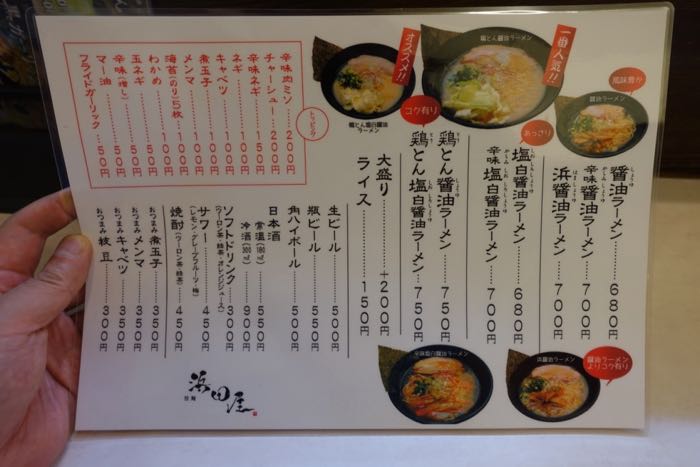 一番人気!!
鶏とん醤油ラーメン
オススメ!!
鶏とん塩白醤油ラーメン
コク有り
あっさり
風味豊か
醤油ラーメン
醤油ラーメン 680円
辛味醤油ラーメン 700円
浜醤油ラーメン 700円
塩白醤油ラーメン 680円
辛味塩白醤油ラーメン 700円
鶏とん醤油ラーメン 750円
鶏とん塩白醤油ラーメン 750円
大盛り +200円
ライス 150円
トッピング
辛味肉ミソ……200円
チャーシュー…200円
辛味ネギ………150円
ネギ……………100円
キャベツ………100円
煮玉子…………100円
メンマ…………100円
海苔(のり)5枚…100円
わかめ…………100円
玉ネギ…………50円
辛味(増し)……50円
マー油…………50円
フライドガーリック 50円
生ビール 500円
瓶ビール 500円
角ハイボール 500円
日本酒
常温(180㎖) 550円
冷酒(300㎖) 900円
ソフトドリンク 300円
(ウーロン茶・緑茶・オレンジジュース)
サワー 450円
(レモン・グレープフルーツ・梅)
焼酎(ウーロン茶・緑茶) 450円
おつまみ煮玉子……350円
おつまみメンマ……350円
おつまみキャベツ…350円
おつまみ枝豆………300円
辛味塩白醤油ラーメン
浜醤油ラーメン
醤油ラーメン
よりコク有り
拉麺
浜田屋